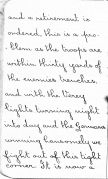 and a retirement is
ordered this is a pro-
blem as the troops are
within thirty yards of
the enemies trenches,
and with the Verey
lights turning night
into day and the Germans
running handsomely we
fight out of this tight
corner. It is now a